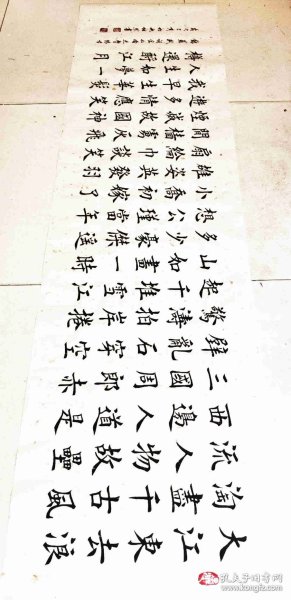 大江東去浪
淘盡千古風
流人物故壘
西邊人道是
三國周郎赤
壁亂石穿空
驚濤拍岸捲
起千堆雪江
山如畫一時
多少豪傑遙
想公瑾當年
小喬初嫁了
雄姿英發羽
扇綸巾談笑
間檣灰飛
煙滅故國神
遊多情應笑
我早生華髮
人生如夢一
樽還酹江月
孔夫子旧书网
www.kongfz.com